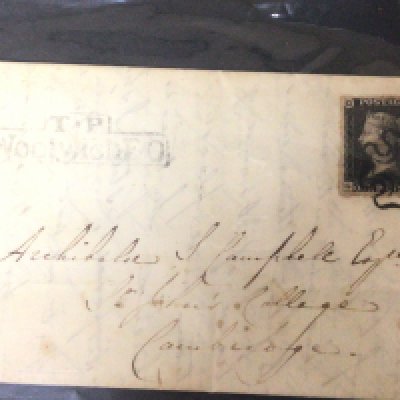 T.P
Woolwich P.O
POSTAGE
Archibald S Campbell Esq
St John's College
Cambridge.